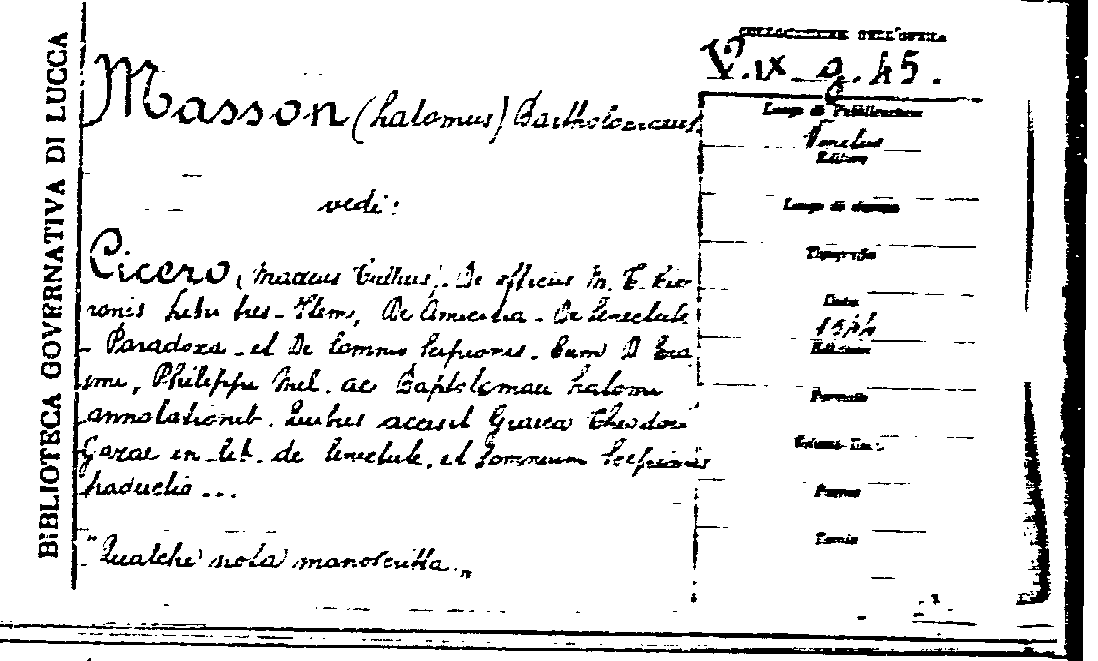 BIBLIOTECA GOVERNATIVA DI LUCCA
COLLOCAZIONE DELL'OPERA
V. IX. g. 45.
Masson (Latomus) Bartholomaeus
vedi:
Cicero (Marcus Tullius). De officiis M. T. Cice-
ronis Libri tres - Item, De Amicitia - De Senectute
- Paradoxa - et De Somnio Scipionis. Cum D. Eras
smi, Philippi Mel. ac Bartolomaei Latomi
annotationib. Quibus accesit Graeca Theodori
Gazae in lib. de Senectute, et Somnium Scipionis
traductio ...
"Qualche nota manoscritta"
Luogo di Pubblicazione
Venetiis
Editore
Luogo di stampa
Tipografia
Data
1544
Edizione
Formato
Volume
Tomo